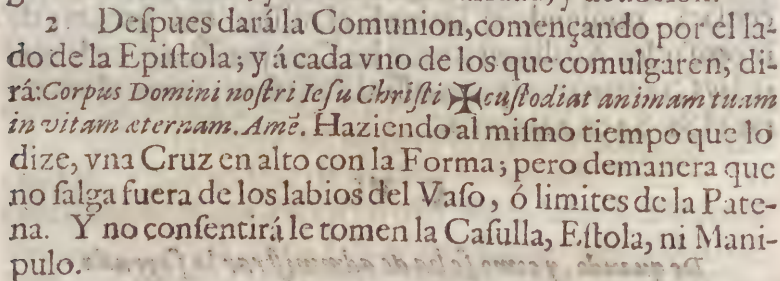 2 Deſpues dará la Comunion, començando por el la-
do de la Epiſtola; y á cada vno de los que comulgaren, di-
rá: Corpus Domini noſtri Ieſu Chriſti ✠ cuſtodiat animam tuam
in vitam æternam. Amẽ. Haziendo al miſmo tiempo que lo
dize, vna Cruz en alto con la Forma; pero demanera que
no ſalga fuera de los labios del Vaſo, ó limites de la Pate-
na. Y no conſentirá le tomen la Caſulla, Eſtola, ni Mani-
pulo.